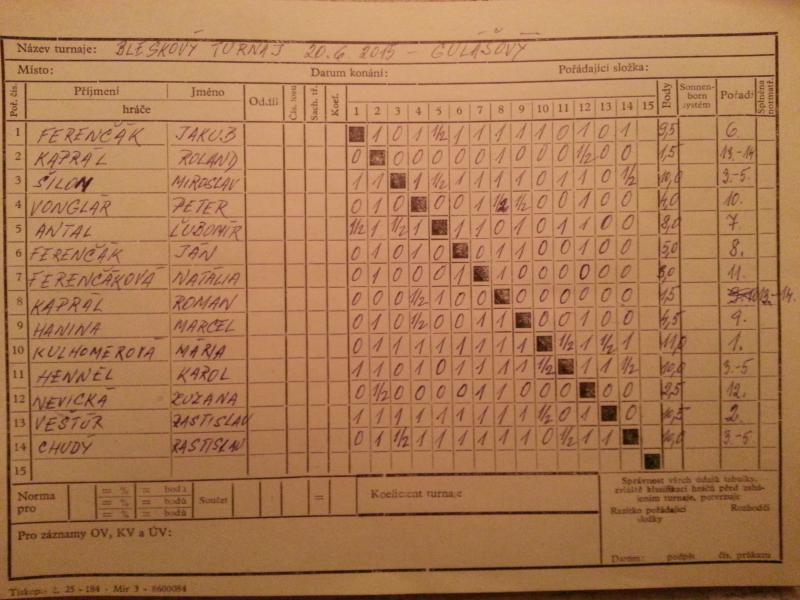 Název turnaje: BLESKOVÝ TURNAJ 20.6 2015 - GULÁŠOVÝ
Místo: Datum konání: Pořádající složka:
Poř. čís. Příjmení Jméno Oddíl Čís. losu Sach. tř. Koef. Body Sonnenborn systém Pořadí Splněna normatř.
hráče 1 2 3 4 5 6 7 8 9 10 11 12 13 14 15
1 FERENČÁK JAKUB 1 0 1 ½ 1 1 1 1 1 0 1 0 1 9,5 6.
2 KAPRÁL ROLAND 0 0 0 0 0 0 1 0 0 0 ½ 0 0 1,5 13.-14
3 ŠILON MIROSLAV 1 1 1 ½ 1 1 1 1 0 1 1 0 ½ 10,0 3.-5.
4 VONGLÁR PETER 0 1 0 0 1 1 ½ ½ 0 0 1 0 0 10.
5 ANTAL ĽUBOMÍR ½ 1 ½ 1 1 1 0 1 0 1 1 0 0 8,0 7
6 FERENČÁK JÁN 0 1 0 1 0 0 1 1 0 0 1 0 0 5,0 8.
7 FERENČÁKOVÁ NATÁLIA 0 1 0 0 0 1 1 0 0 0 0 0 0 3,0 11.
8 KAPRÁL ROMAN 0 0 0 ½ 1 0 0 0 0 0 0 0 0 1,5 13.-14.
9 HANINA MARCEL 0 1 0 ½ 0 0 1 1 0 0 1 0 0 4,5 9.
10 KULHOMEROVÁ MÁRIA 0 1 1 1 1 1 1 1 1 ½ 1 ½ 1 11,0 1.
11 HENNEL KAROL 1 1 0 1 0 1 1 1 1 ½ 1 1 ½ 10,0 3.-5
12 NEVICKÁ ZUZANA 0 ½ 0 0 0 0 1 1 0 0 0 0 0 2,5 12.
13 VEŠTÚR RASTISLAV 1 1 1 1 1 1 1 1 1 ½ 0 1 0 10,5 2.
14 CHUDÝ RASTISLAV 0 1 ½ 1 1 1 1 1 1 0 ½ 1 1 10,0 3.-5.
15
Norma pro = % = bodů Součet = Koeficient turnaje
= % = bodů
= % = bodů
Správnost všech údajů tabulky, zvláště klasifikaci hráčů před zahájením turnaje, potvrzuje
Razítko pořádající složky Rozhodčí
Pro záznamy OV, KV a ÚV:
Datum: podpis čís. průkazu
Tiskopis 2, 25 - 184 - Mír 3 - 8600084